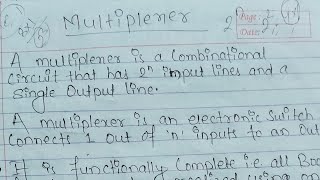 Multiplexer
Page:
Date:
A multiplexer is a Combinational
Circuit that has 2ⁿ input lines and a
Single Output line.
A multiplexer is an electronic Switch
Connects 1 Out of 'n' inputs to an Out
It is functionally Complete i.e. all Boo